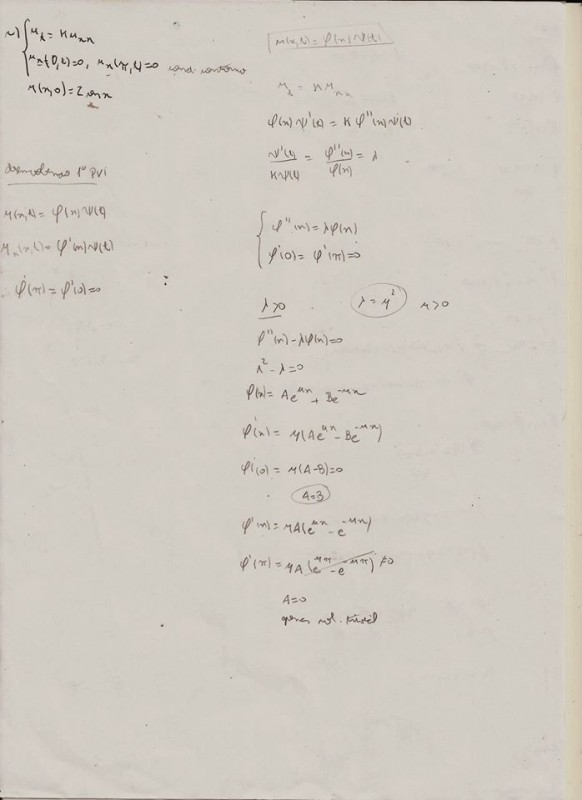 u_t = K u_xx
u_x(0,t)=0, u_x(π,t)=0 cond contorno
u(x,0)=2 cos x
1º PVI
u(x,t)= φ(x)ψ(t)
u_x(x,t)= φ'(x)ψ(t)
φ'(π)=φ'(0)=0
u(x,t)= φ(x)ψ(t)
u_t = K u_xx
φ(x)ψ'(t) = K φ''(x)ψ(t)
ψ'(t)/Kψ(t) = φ''(x)/φ(x) = λ
φ''(x) = λφ(x)
φ'(0) = φ'(π)=0
λ>0 λ = μ² μ>0
φ''(x) - λφ(x)=0
r² - λ=0
φ(x)= Ae^μx + Be^-μx
φ'(x) = μ(Ae^μx - Be^-μx)
φ'(0) = μ(A-B)=0
A=B
φ'(x) = μA(e^μx - e^-μx)
φ'(π) = μA(e^μπ - e^-μπ) ≠0
A=0
apenas sol. trivial